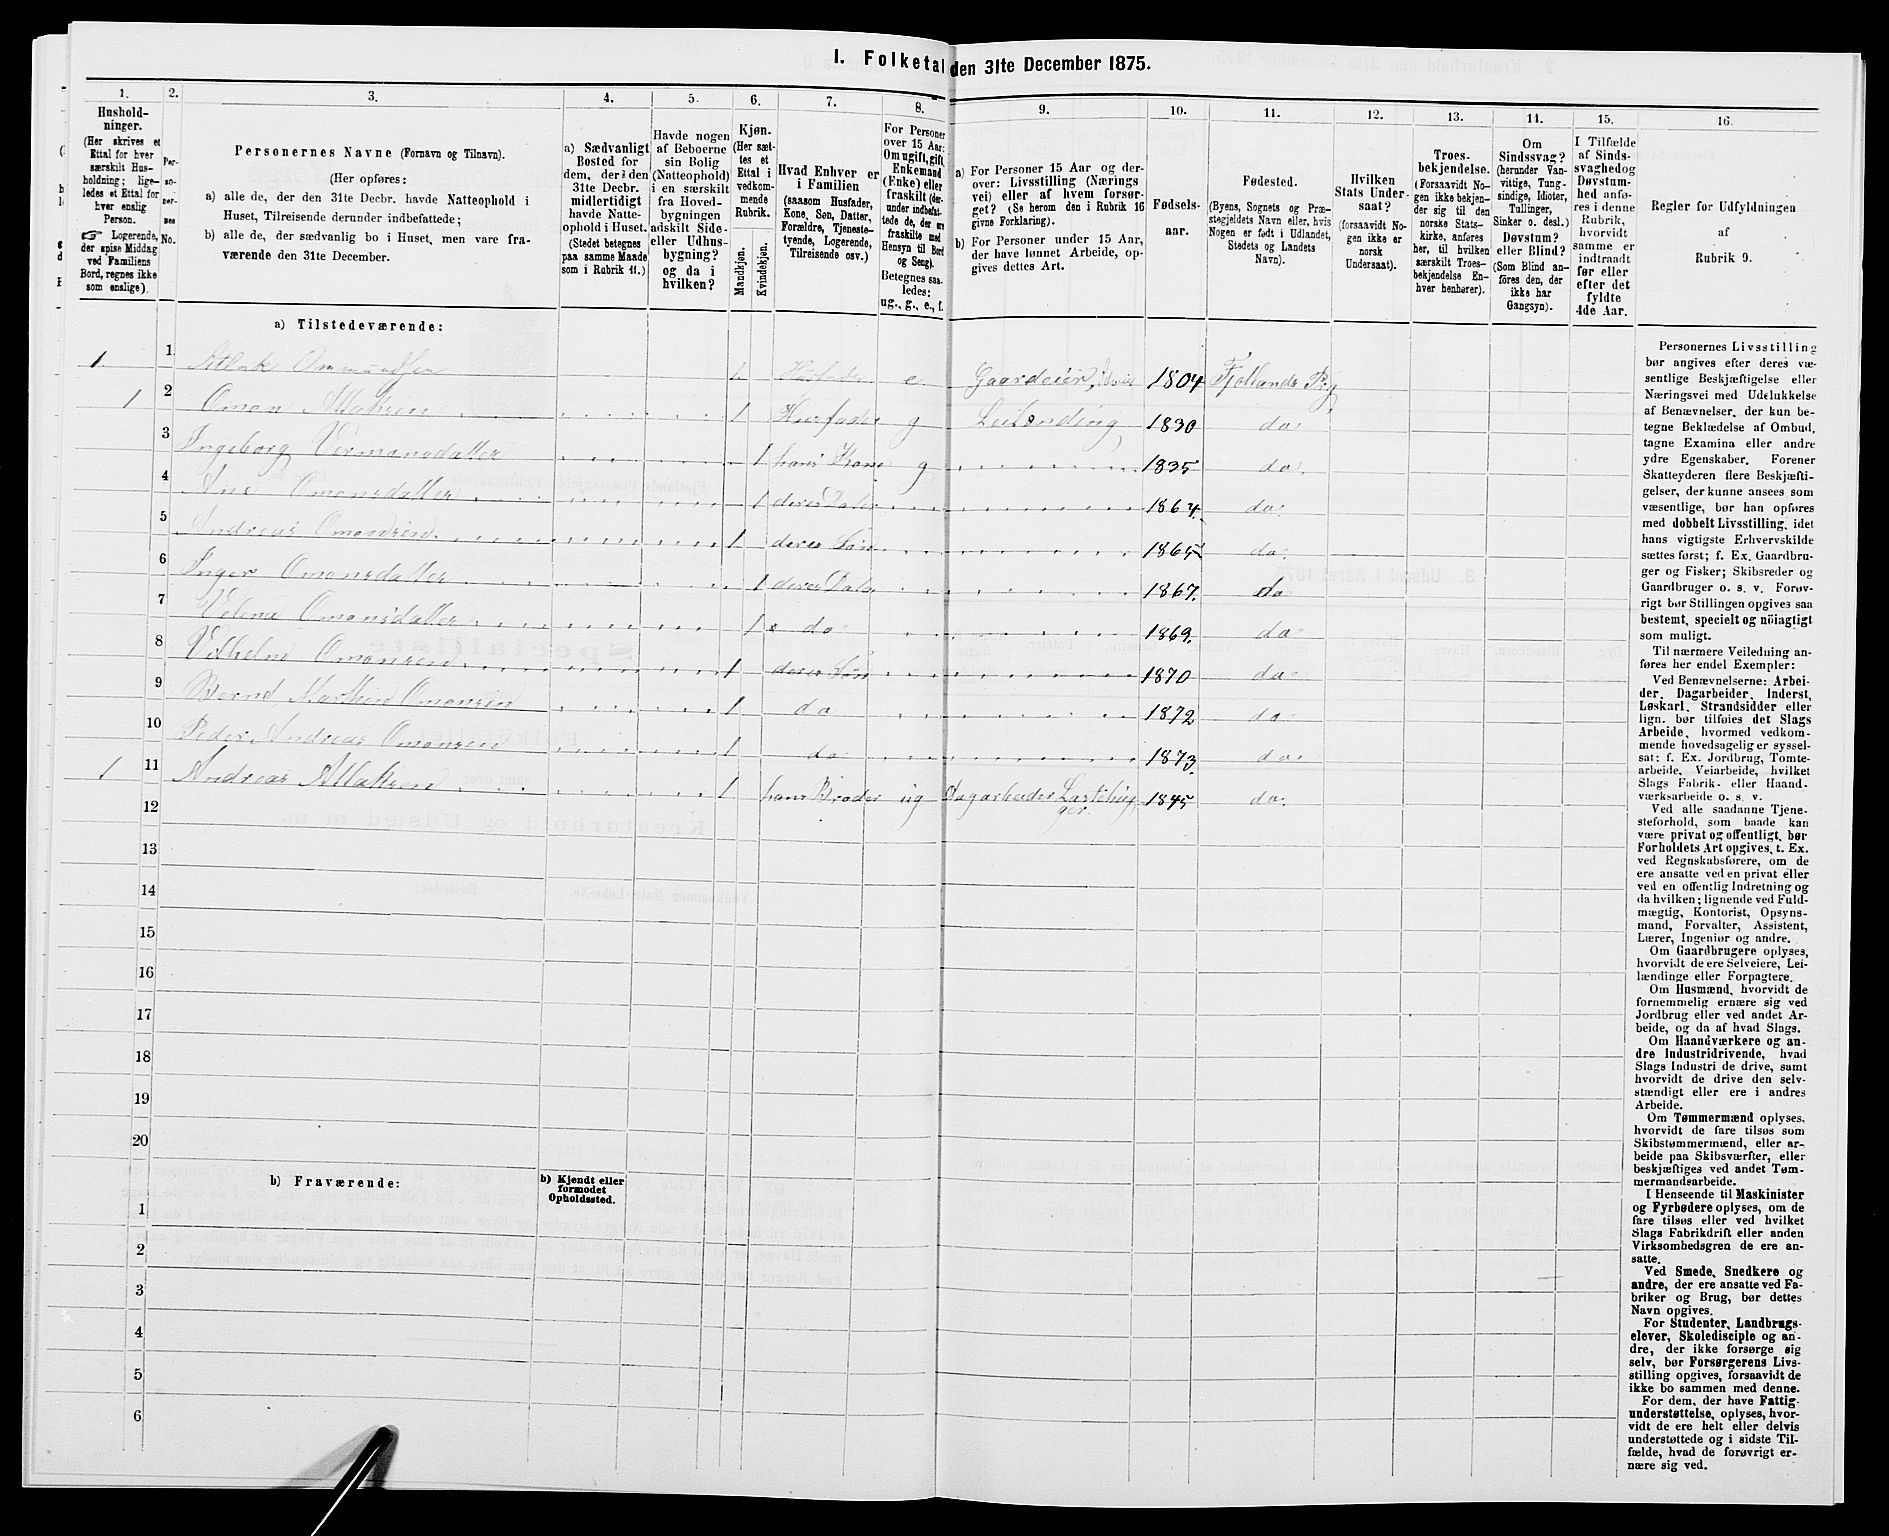 I. Folketal den 31te December 1875.
1.
Hushold-
ninger.
(Her skrives et
Ettal for hver
særskilt Hus-
holdning; lige-
ledes et Ettal for
hver enslig
Person.
☞ Logerende,
der spise Middag
ved Familiens
Bord, regnes ikke
som enslige).
2.
Per-
so-
ner-
nes
No.
3.
Personernes Navne (Fornavn og Tilnavn).
(Her opføres:
a) alle de, der den 31te Decbr. havde Natteophold i
Huset, Tilreisende derunder indbefattede;
b) alle de, der sædvanlig bo i Huset, men vare fra-
værende den 31te December.
4.
a) Sædvanligt
Bosted for
dem, der i den
31te Decbr.
midlertidigt
havde Natte-
ophold i Huset.
(Stedet betegnes
paa samme Maade
som i Rubrik 11.)
5.
Havde nogen
af Beboerne
sin Bolig
(Natteophold)
i en særskilt
fra Hoved-
bygningen
adskilt Side-
eller Udhus-
bygning?
og da i
hvilken?
6.
Kjøn.
(Her sæt-
tes et
Ettal i
vedkom-
mende
Rubrik.
Mandkjøn.
Kvindekjøn.
7.
Hvad Enhver er
i Familien
(saasom Husfader,
Kone, Søn, Datter,
Forældre, Tjeneste-
tyende, Logerende,
Tilreisende osv.)
8.
For Personer
over 15 Aar:
Om ugift, gift,
Enkemand
(Enke) eller
fraskilt (der-
under indbefat-
tede de, der ere
fraskilte med
Hensyn til Bord
og Seng).
Betegnes saa-
ledes:
ug., g., e., f.
9.
a) For Personer 15 Aar og der-
over: Livsstilling (Nærings
vei) eller af hvem forsør-
get? (Se herom den i Rubrik 16
givne Forklaring).
b) For Personer under 15 Aar,
der have lønnet Arbeide, op-
gives dettes Art.
10.
Fødsels-
aar.
11.
Fødested.
(Byens, Sognets og Præ-
stegjeldets Navn eller, hvis
Nogen er født i Udlandet,
Stedets og Landets
Navn).
12.
Hvilken
Stats Under-
saat?
(forsaavidt No-
gen ikke er
norsk
Undersaat).
13.
Troes-
bekjendelse.
(Forsaavidt No-
gen ikke bekjen-
der sig til den
norske Stats-
kirke, anføres
her, til hvilken
særskilt Troes-
bekjendelse En-
hver henhører).
14.
Om
Sindssvag?
(herunder Van-
vittige, Tung-
sindige, Idioter,
Tullinger,
Sinker o. desl.)
Døvstum?
eller Blind?
(Som Blind an-
föres den, der
ikke har
Gangsyn).
15.
I Tilfælde
af Sinds-
svaghed og
Døvstum-
hed anfø-
res i denne
Rubrik,
hvorvidt
samme er
indtraadt
før eller
efter det
fyldte
4de Aar.
16.
Regler for Udfyldningen
af
Rubrik 9.
a) Tilstedeværende:
1. 1 Atlak Ommundsen 1 Husfader e Gaardeier, 1804 Fjotlands Pg
1 2 Omon Atlaksen 1 Husfader g Leilending 1830 do
3 Ingeborg Vermonsdatter 1 hans Kone g 1835 do.
4 Ane Omonsdatter 1 deres Dater 1864. do.
5 Andreas Omonsen 1 deres Søn 1865 do.
6 Inger Omonsdatter 1 deres Dater 1867. do
7 Velena Omonsdatter 1 do 1869. do
8 Vilhelm Omonsen 1 deres Søn 1870 do
9 Bernt Marthin Omonsen 1 do 1872 do
10 Peder Andreas Omonsen 1 do 1873. do
1 11 Andreas Atlaksen 1 hans Broder ug Dagarbeider 1845 do.
12
13
14
15
16
17
18
19
20
b) Fraværende:
b) Kjendt eller
formodet
Opholdssted.
1
2
3
4
5
6
Personernes Livsstilling
bør angives efter deres væ-
sentlige Beskjæftigelse eller
Næringsvei med Udelukkelse
af Benævnelser, der kun be-
tegne Beklædelse af Ombud,
tagne Examina eller andre
ydre Egenskaber. Forener
Skatteyderen flere Beskjæfti-
gelser, der kunne ansees som
væsentlige, bør han opføres
med dobbelt Livsstilling, idet
hans vigtigste Erhvervskilde
sættes først; f. Ex. Gaardbru-
ger og Fisker; Skibsreder og
Gaardbruger o. s. v. Forøv-
rigt bør Stillingen opgives saa
bestemt, specielt og nöiagtigt
som muligt.
Til nærmere Veiledning an-
føres her endel Exempler:
Ved Benævnelserne: Arbei-
der, Dagarbeider, Inderst,
Løskarl, Strandsidder eller
lign. bør tilføies det Slags
Arbeide, hvormed vedkom-
mende hovedsagelig er syssel-
sat: f. Ex. Jordbrug, Tomte-
arbeide, Veiarbeide, hvilket
Slags Fabrik- eller Haand-
værksarbeide o. s. v.
Ved alle saadanne Tjene-
steforhold, som baade kan
være privat og offentligt, bør
Forholdets Art opgives, t. Ex.
ved Regnskabsførere, om de
ere ansatte ved en privat eller
ved en offentlig Indretning og
da hvilken; lignende ved Fuld-
mægtig, Kontorist, Opsyns-
mand, Forvalter, Assistent,
Lærer, Ingeniør og andre.
Om Gaardbrugere oplyses,
hvorvidt de ere Selveiere, Lei-
lændinge eller Forpagtere.
Om Husmænd, hvorvidt de
fornemmelig ernære sig ved
Jordbrug eller ved andet Ar-
beide, og da af hvad Slags.
Om Haandværkere og an-
dre Industridrivende, hvad
Slags Industri de drive, samt
hvorvidt de drive den selv-
stændigt eller ere i andres
Arbeide.
Om Tømmermænd oplyses,
hvorvidt de fare tilsøs som
Skibstømmermænd, eller ar-
beide paa Skibsværfter, eller
beskjæftiges ved andet Tøm-
mermandsarbeide.
I Henseende til Maskinister
og Fyrbødere oplyses, om de
fare tilsøs eller ved hvilket
Slags Fabrikdrift eller anden
Virksomhedsgren de ere an-
satte.
Ved Smede, Snedkere og
andre, der ere ansatte ved Fa-
briker og Brug, bør dettes
Navn opgives.
For Studenter, Landbrugs-
elever, Skoledisciple og an-
dre, der ikke forsørge sig
selv, bør Forsørgerens Livs-
stilling opgives, forsaavidt de
ikke bo sammen med denne.
For dem, der have Fattig-
understøttelse, oplyses, hvor-
vidt de ere helt eller delvis
understøttede og i sidste Til-
fælde, hvad de forøvrigt er-
nære sig ved.